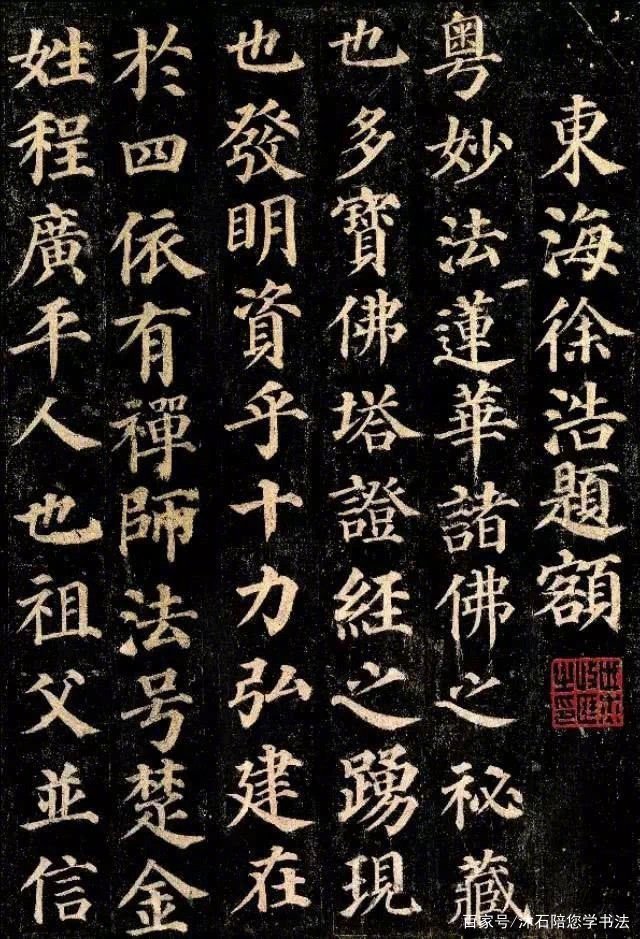 東海徐浩題額
粤妙法蓮華諸佛之祕藏
也多寶佛塔證經之踴現
也發明資乎十力弘建在
於四依有禪師法号楚金
姓程廣平人也祖父並信
百家号/沐石陪您学书法